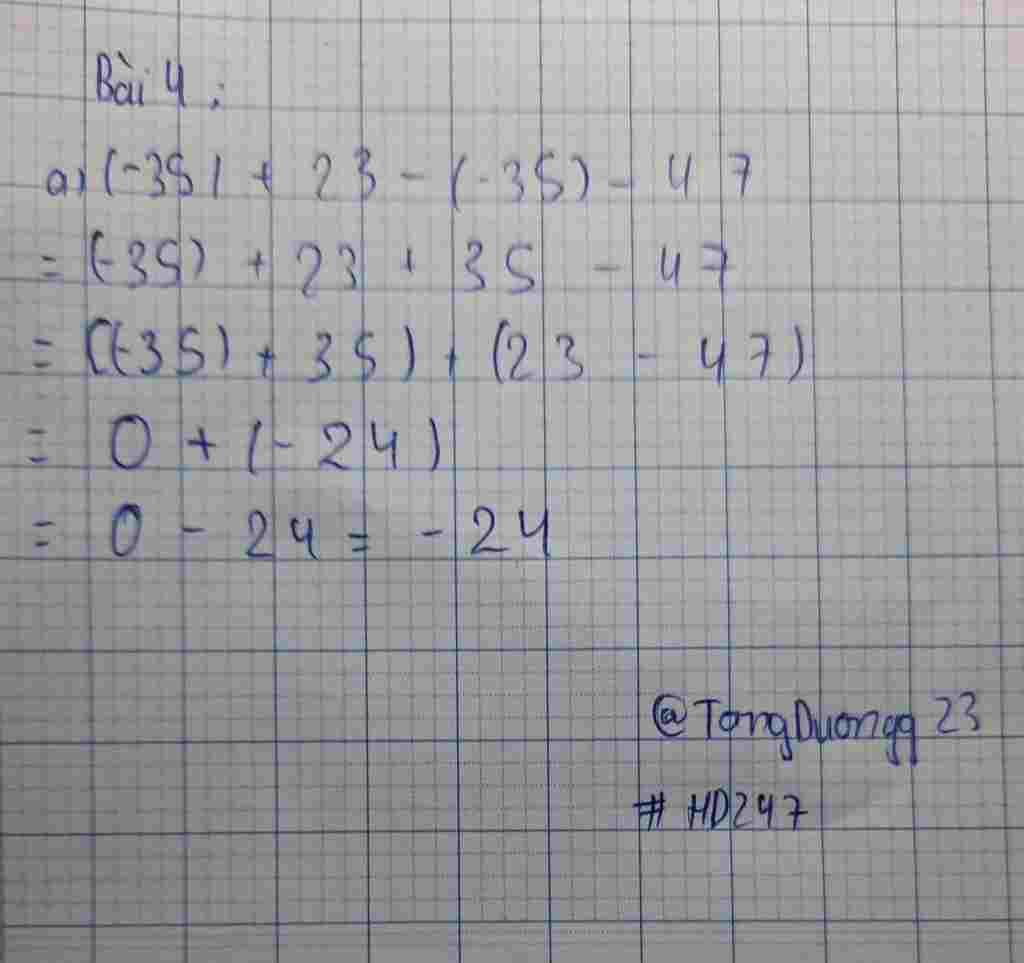 Bài 4 :
a) (-35) + 23 - (-35) - 47
= (-35) + 23 + 35 - 47
= ((-35) + 35) + (23 - 47)
= 0 + (-24)
= 0 - 24 = -24
@TongDuongg23
# HD247